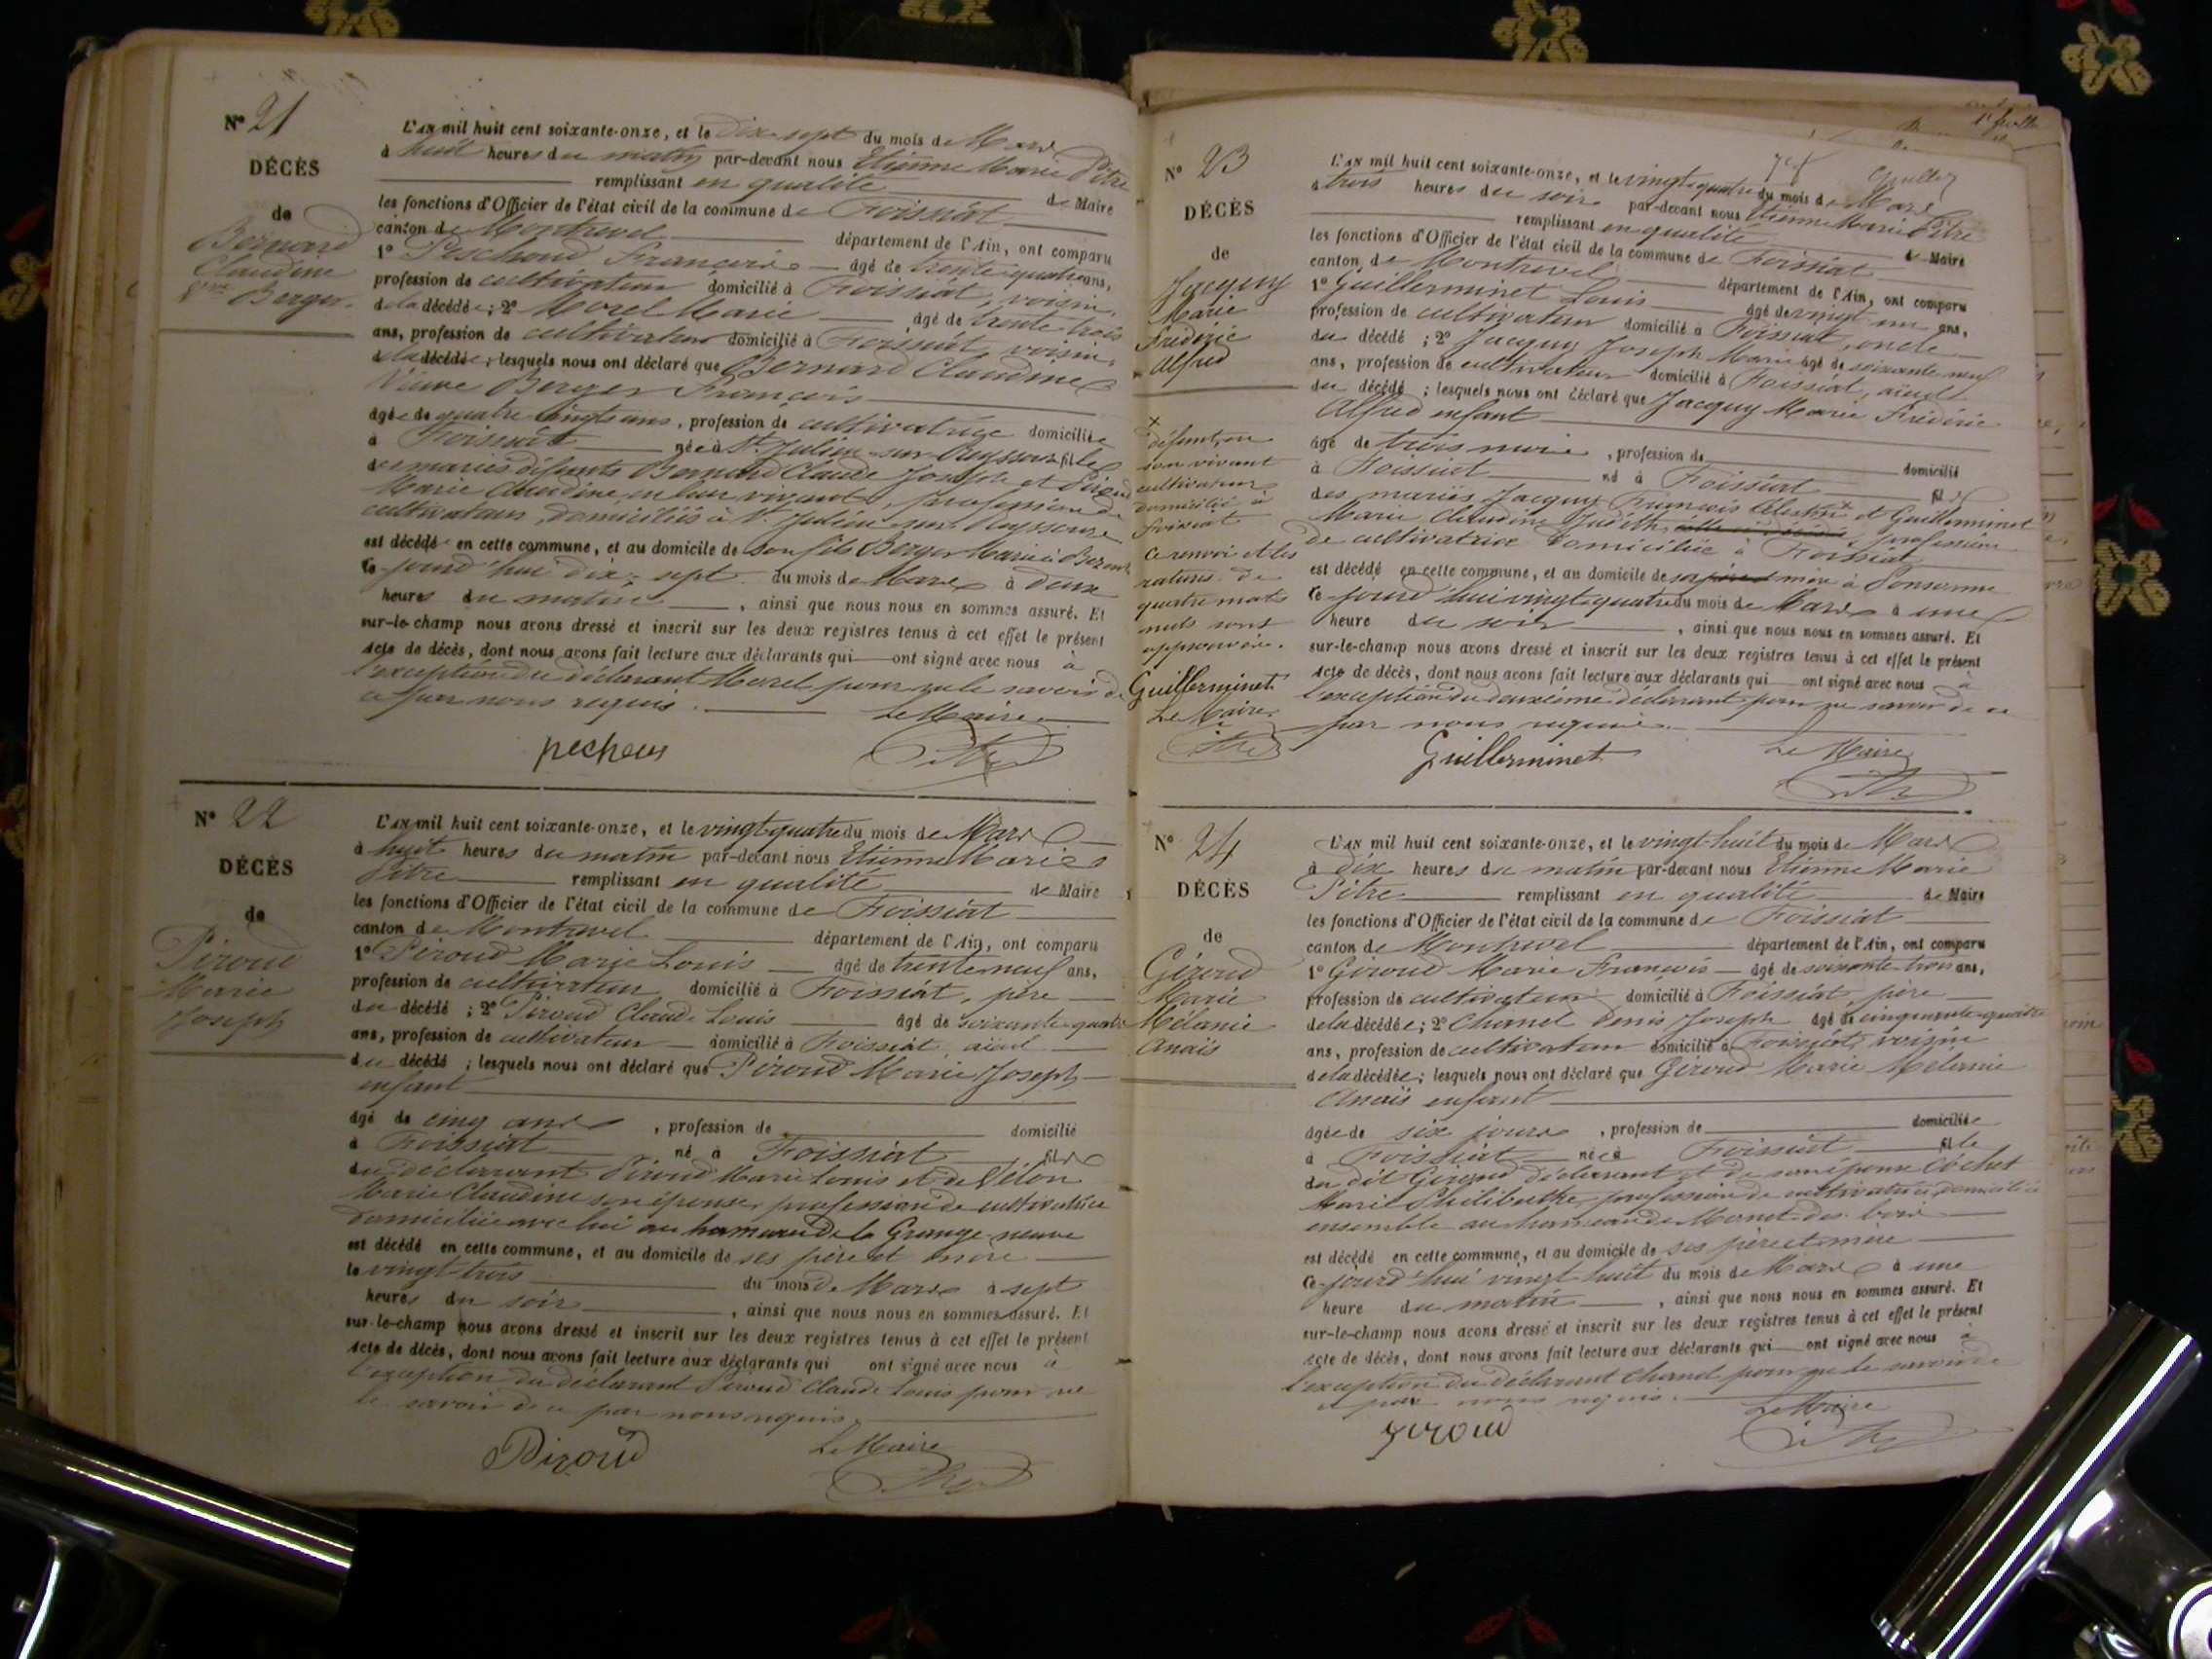 N° 21
DÉCÈS
de
Bernard
Claudine
Vve Berger
L'AN mil huit cent soixante-onze, et le dix-sept du mois de Mars
à huit heures du matin par-devant nous Etienne Marie Pitre
remplissant en qualité de Maire
les fonctions d'Officier de l'état civil de la commune de Foissiat
canton de Montrevel département de l'Ain, ont comparu
1° Peschoud François âgé de trente quatre ans,
profession de cultivateur domicilié à Foissiat, voisin
de la décédée; 2° Morel Marie âgé de trente trois
ans, profession de cultivateur domicilié à Foissiat voisin
de la décédée; lesquels nous ont déclaré que Bernard Claudine
Veuve Berger François
âgée de quatre vingts ans, profession de cultivatrice domiciliée
à Foissiat née à St Julien-sur-Reyssouze fille
des mariés défunts Bernard Claude Joseph et
Marie Claudine en leur vivant, profession de
cultivateurs, domiciliés à St Julien-sur-Reyssouze
est décédée en cette commune, et au domicile de son fils Berger Marie à
Ce jourd'hui dix-sept du mois de Mars à deux
heures du matin, ainsi que nous nous en sommes assuré. Et
sur-le-champ nous avons dressé et inscrit sur les deux registres tenus à cet effet le présent
acte de décès, dont nous avons fait lecture aux déclarants qui ont signé avec nous à
l'exception du déclarant Morel pour ne le savoir de
ce par nous requis.
Le Maire
pecheus
Pitre
N° 22
DÉCÈS
de
Piroud
Marie
Joseph
L'AN mil huit cent soixante-onze, et le vingt-quatre du mois de Mars
à huit heures du matin par-devant nous Etienne Marie
Pitre remplissant en qualité de Maire
les fonctions d'Officier de l'état civil de la commune de Foissiat
canton de Montrevel département de l'Ain, ont comparu
1° Piroud Marie Louis âgé de trente neuf ans,
profession de cultivateur domicilié à Foissiat, père
du décédé; 2° Piroud Claude Louis âgé de soixante quatre
ans, profession de cultivateur domicilié à Foissiat aïeul
du décédé; lesquels nous ont déclaré que Piroud Marie Joseph
enfant
âgé de cinq ans, profession de domicilié
à Foissiat né à Foissiat fils
du déclarant Piroud Marie Louis et de Vélon
Marie Claudine son épouse, profession de cultivatrice
domiciliée avec lui au hameau de la Grange neuve
est décédé en cette commune, et au domicile de ses père et mère
le vingt-trois du mois de Mars à sept
heures du soir, ainsi que nous nous en sommes assuré. Et
sur-le-champ nous avons dressé et inscrit sur les deux registres tenus à cet effet le présent
acte de décès, dont nous avons fait lecture aux déclarants qui ont signé avec nous à
l'exception du déclarant Piroud Claude Louis pour ne
le savoir de ce par nous requis.
Le Maire
Piroud
Pitre
N° 23
DÉCÈS
de
Jacquy
Marie
Frédéric
Alfred
L'AN mil huit cent soixante-onze, et le vingt-quatre du mois de Mars
à trois heures du soir par-devant nous Etienne Marie Pitre
remplissant en qualité de Maire
les fonctions d'Officier de l'état civil de la commune de Foissiat
canton de Montrevel département de l'Ain, ont comparu
1° Guillerminet Louis âgé de vingt un ans,
profession de cultivateur domicilié à Foissiat, oncle
du décédé; 2° Jacquy Joseph Marie âgé de soixante neuf
ans, profession de cultivateur domicilié à Foissiat, aïeul
du décédé; lesquels nous ont déclaré que Jacquy Marie Frédéric
Alfred enfant
âgé de trois mois, profession de domicilié
à Foissiat né à Foissiat fils
des mariés Jacquy François et Guillerminet
Marie Claudine Judith, profession
de cultivatrice domiciliée à Foissiat
est décédé en cette commune, et au domicile de sa mère à Ponsonne
Ce jourd'hui vingt-quatre du mois de Mars à une
heure du soir, ainsi que nous nous en sommes assuré. Et
sur-le-champ nous avons dressé et inscrit sur les deux registres tenus à cet effet le présent
acte de décès, dont nous avons fait lecture aux déclarants qui ont signé avec nous à
l'exception du deuxième déclarant pour ne savoir de ce
par nous requis.
Guillerminet
Le Maire
Pitre
défunt, en
son vivant
cultivateur
domicilié à
Foissiat
Ce renvoi et les
ratures de
quatre mots
nuls sont
approuvés.
Guillerminet
Le Maire
Pitre
N° 24
DÉCÈS
de
Giroud
Marie
Mélanie
Anaïs
L'AN mil huit cent soixante-onze, et le vingt-huit du mois de Mars
à dix heures du matin par-devant nous Etienne Marie
Pitre remplissant en qualité de Maire
les fonctions d'Officier de l'état civil de la commune de Foissiat
canton de Montrevel département de l'Ain, ont comparu
1° Giroud Marie François âgé de soixante-trois ans,
profession de cultivateur domicilié à Foissiat, père
de la décédée; 2° Chanel Denis Joseph âgé de cinquante-quatre
ans, profession de cultivateur domicilié à Foissiat, voisin
de la décédée; lesquels nous ont déclaré que Giroud Marie Mélanie
Anaïs enfant
âgée de six jours, profession de domiciliée
à Foissiat née à Foissiat fille
du dit Giroud déclarant et de son épouse Cochet
Marie Philiberthe, profession de cultivatrice domiciliés
ensemble au hameau de Monet des bois
est décédé en cette commune, et au domicile de ses père et mère
Ce jourd'hui vingt huit du mois de Mars à une
heure du matin, ainsi que nous nous en sommes assuré. Et
sur-le-champ nous avons dressé et inscrit sur les deux registres tenus à cet effet le présent
acte de décès, dont nous avons fait lecture aux déclarants qui ont signé avec nous à
l'exception du déclarant Chanel pour ne le savoir de
ce par nous requis.
Le Maire
giroud
Pitre